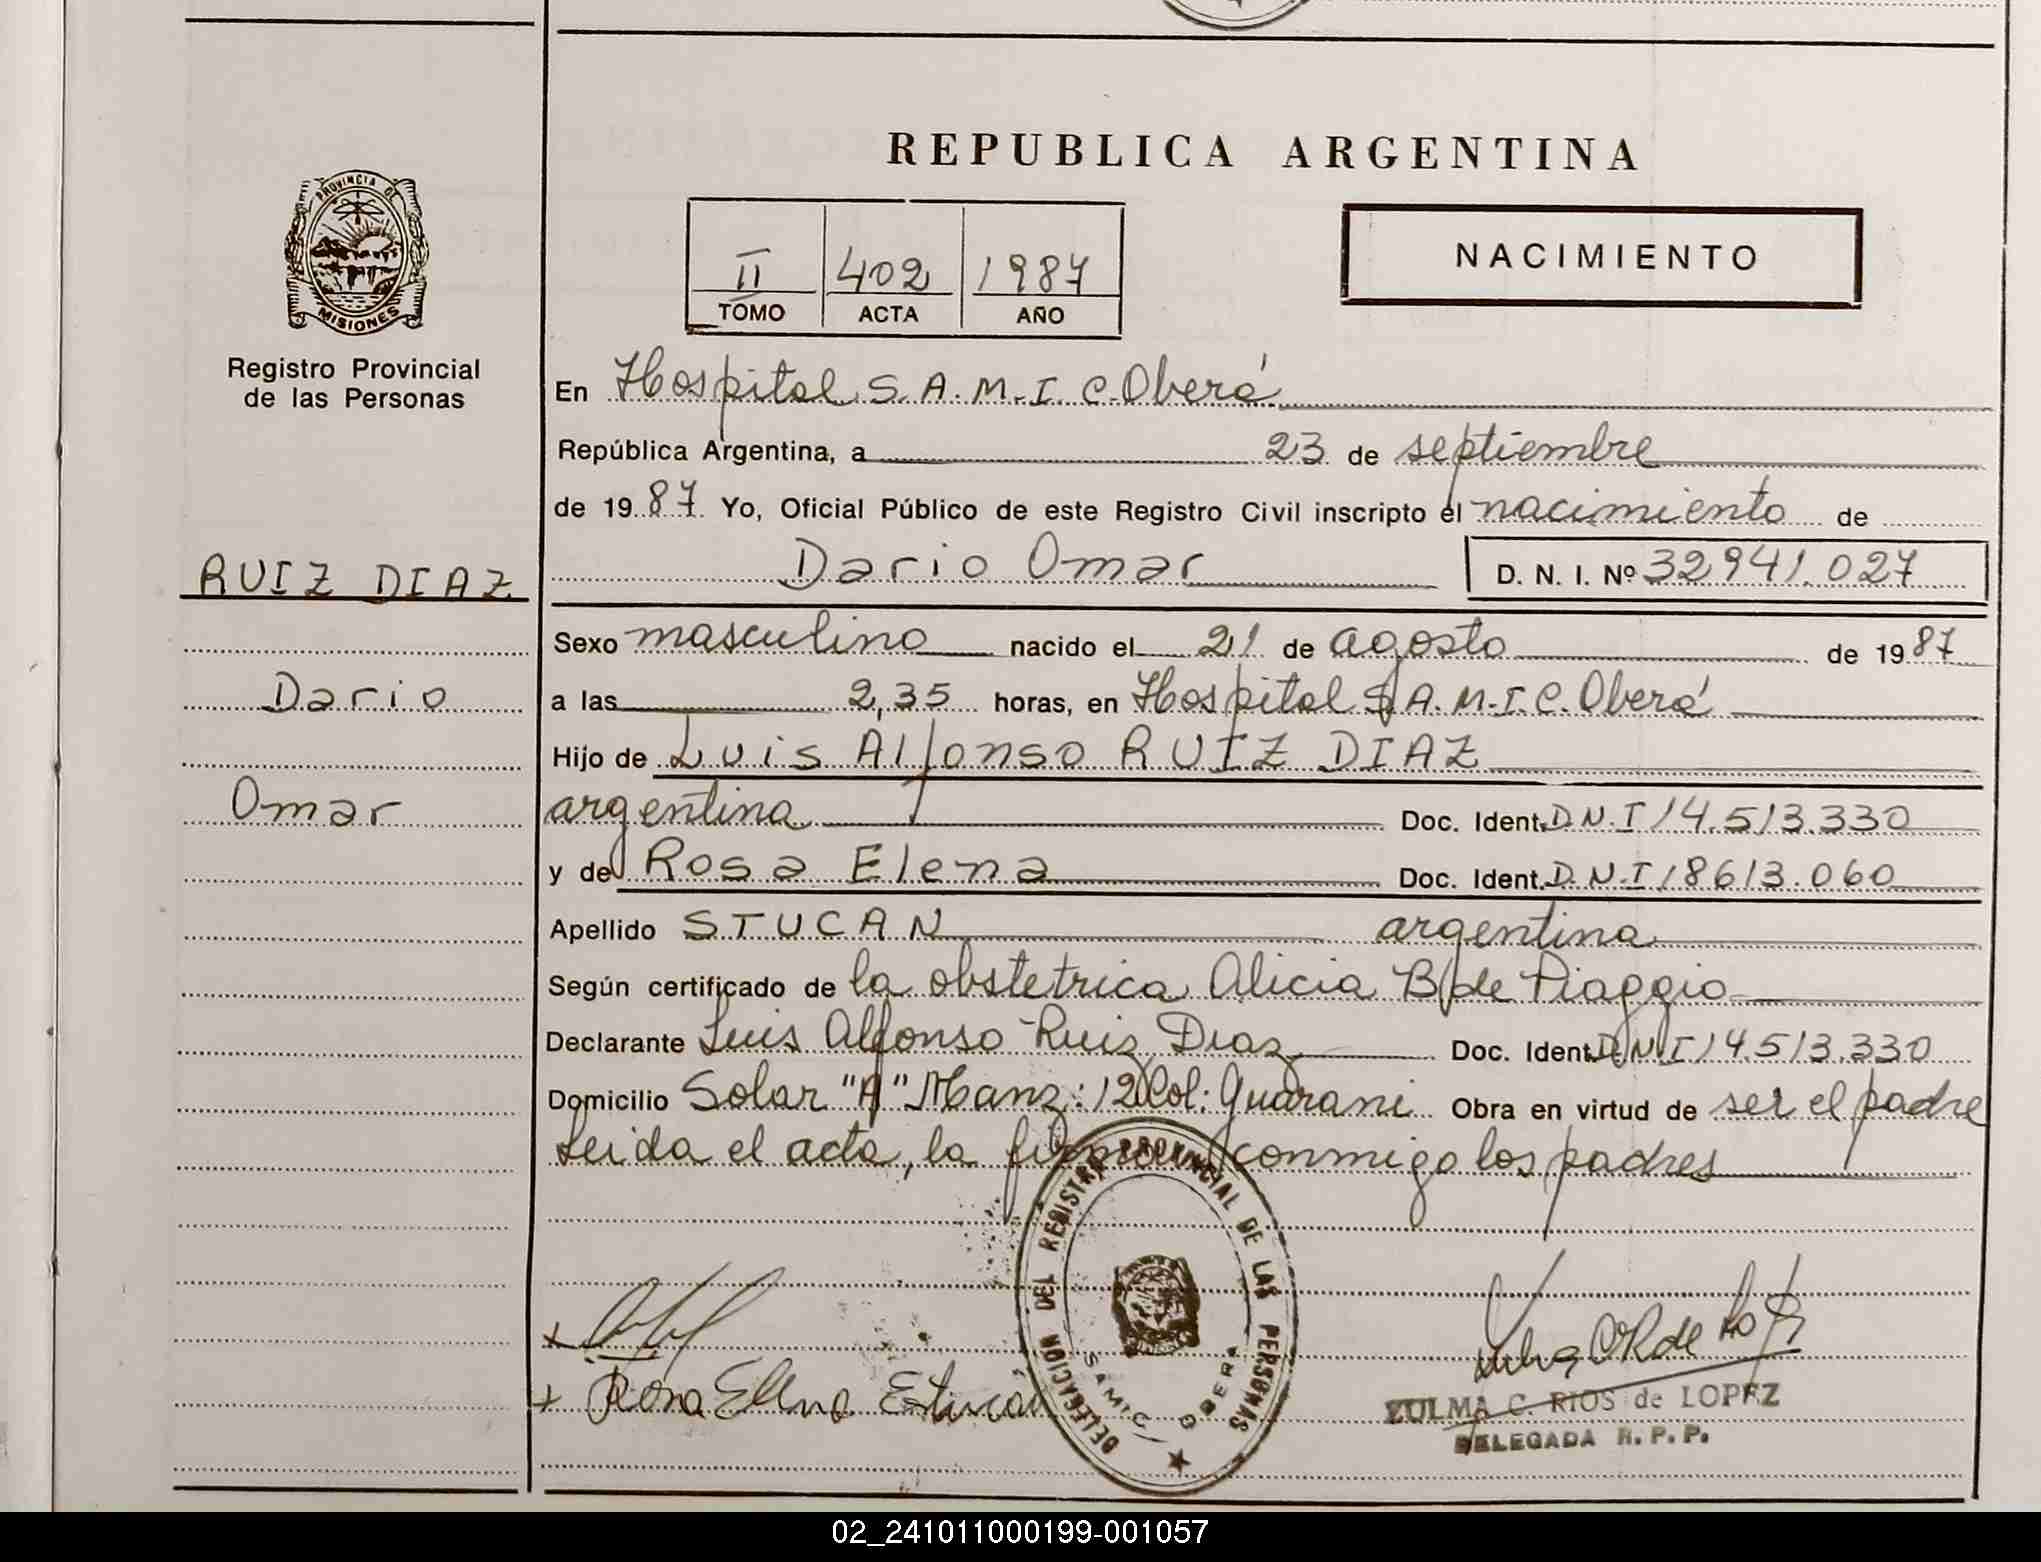 REPUBLICA ARGENTINA
PROVINCIA DE
MISIONES
Registro Provincial
de las Personas
II 402 1987
TOMO ACTA AÑO
NACIMIENTO
En Hospital S.A.M.I.C. Oberá
República Argentina, a 23 de septiembre
de 1987 Yo, Oficial Público de este Registro Civil inscripto el nacimiento de
Dario Omar D. N. I. Nº 32941.027
RUIZ DIAZ
Dario
Omar
Sexo masculino nacido el 21 de agosto de 1987
a las 2,35 horas, en Hospital S.A.M.I.C. Oberá
Hijo de Luis Alfonso RUIZ DIAZ
argentina Doc. Ident. D.N.I 14.513.330
y de Rosa Elena Doc. Ident. D.N.I 18613.060
Apellido STUCAN argentina
Según certificado de la obstetrica Alicia B de Piaggio
Declarante Luis Alfonso Ruiz Diaz Doc. Ident. D.N.I 14.513.330
Domicilio Solar "A" Manz: 12 Col: Guarani Obra en virtud de ser el padre
Leida el acta, la firman conmigo los padres
DELEGACION DEL REGISTRO PROVINCIAL DE LAS PERSONAS
SAMIC OBERA
+
+ Rosa Elena
ZULMA C. RIOS de LOPEZ
DELEGADA R. P. P.
02_241011000199-001057